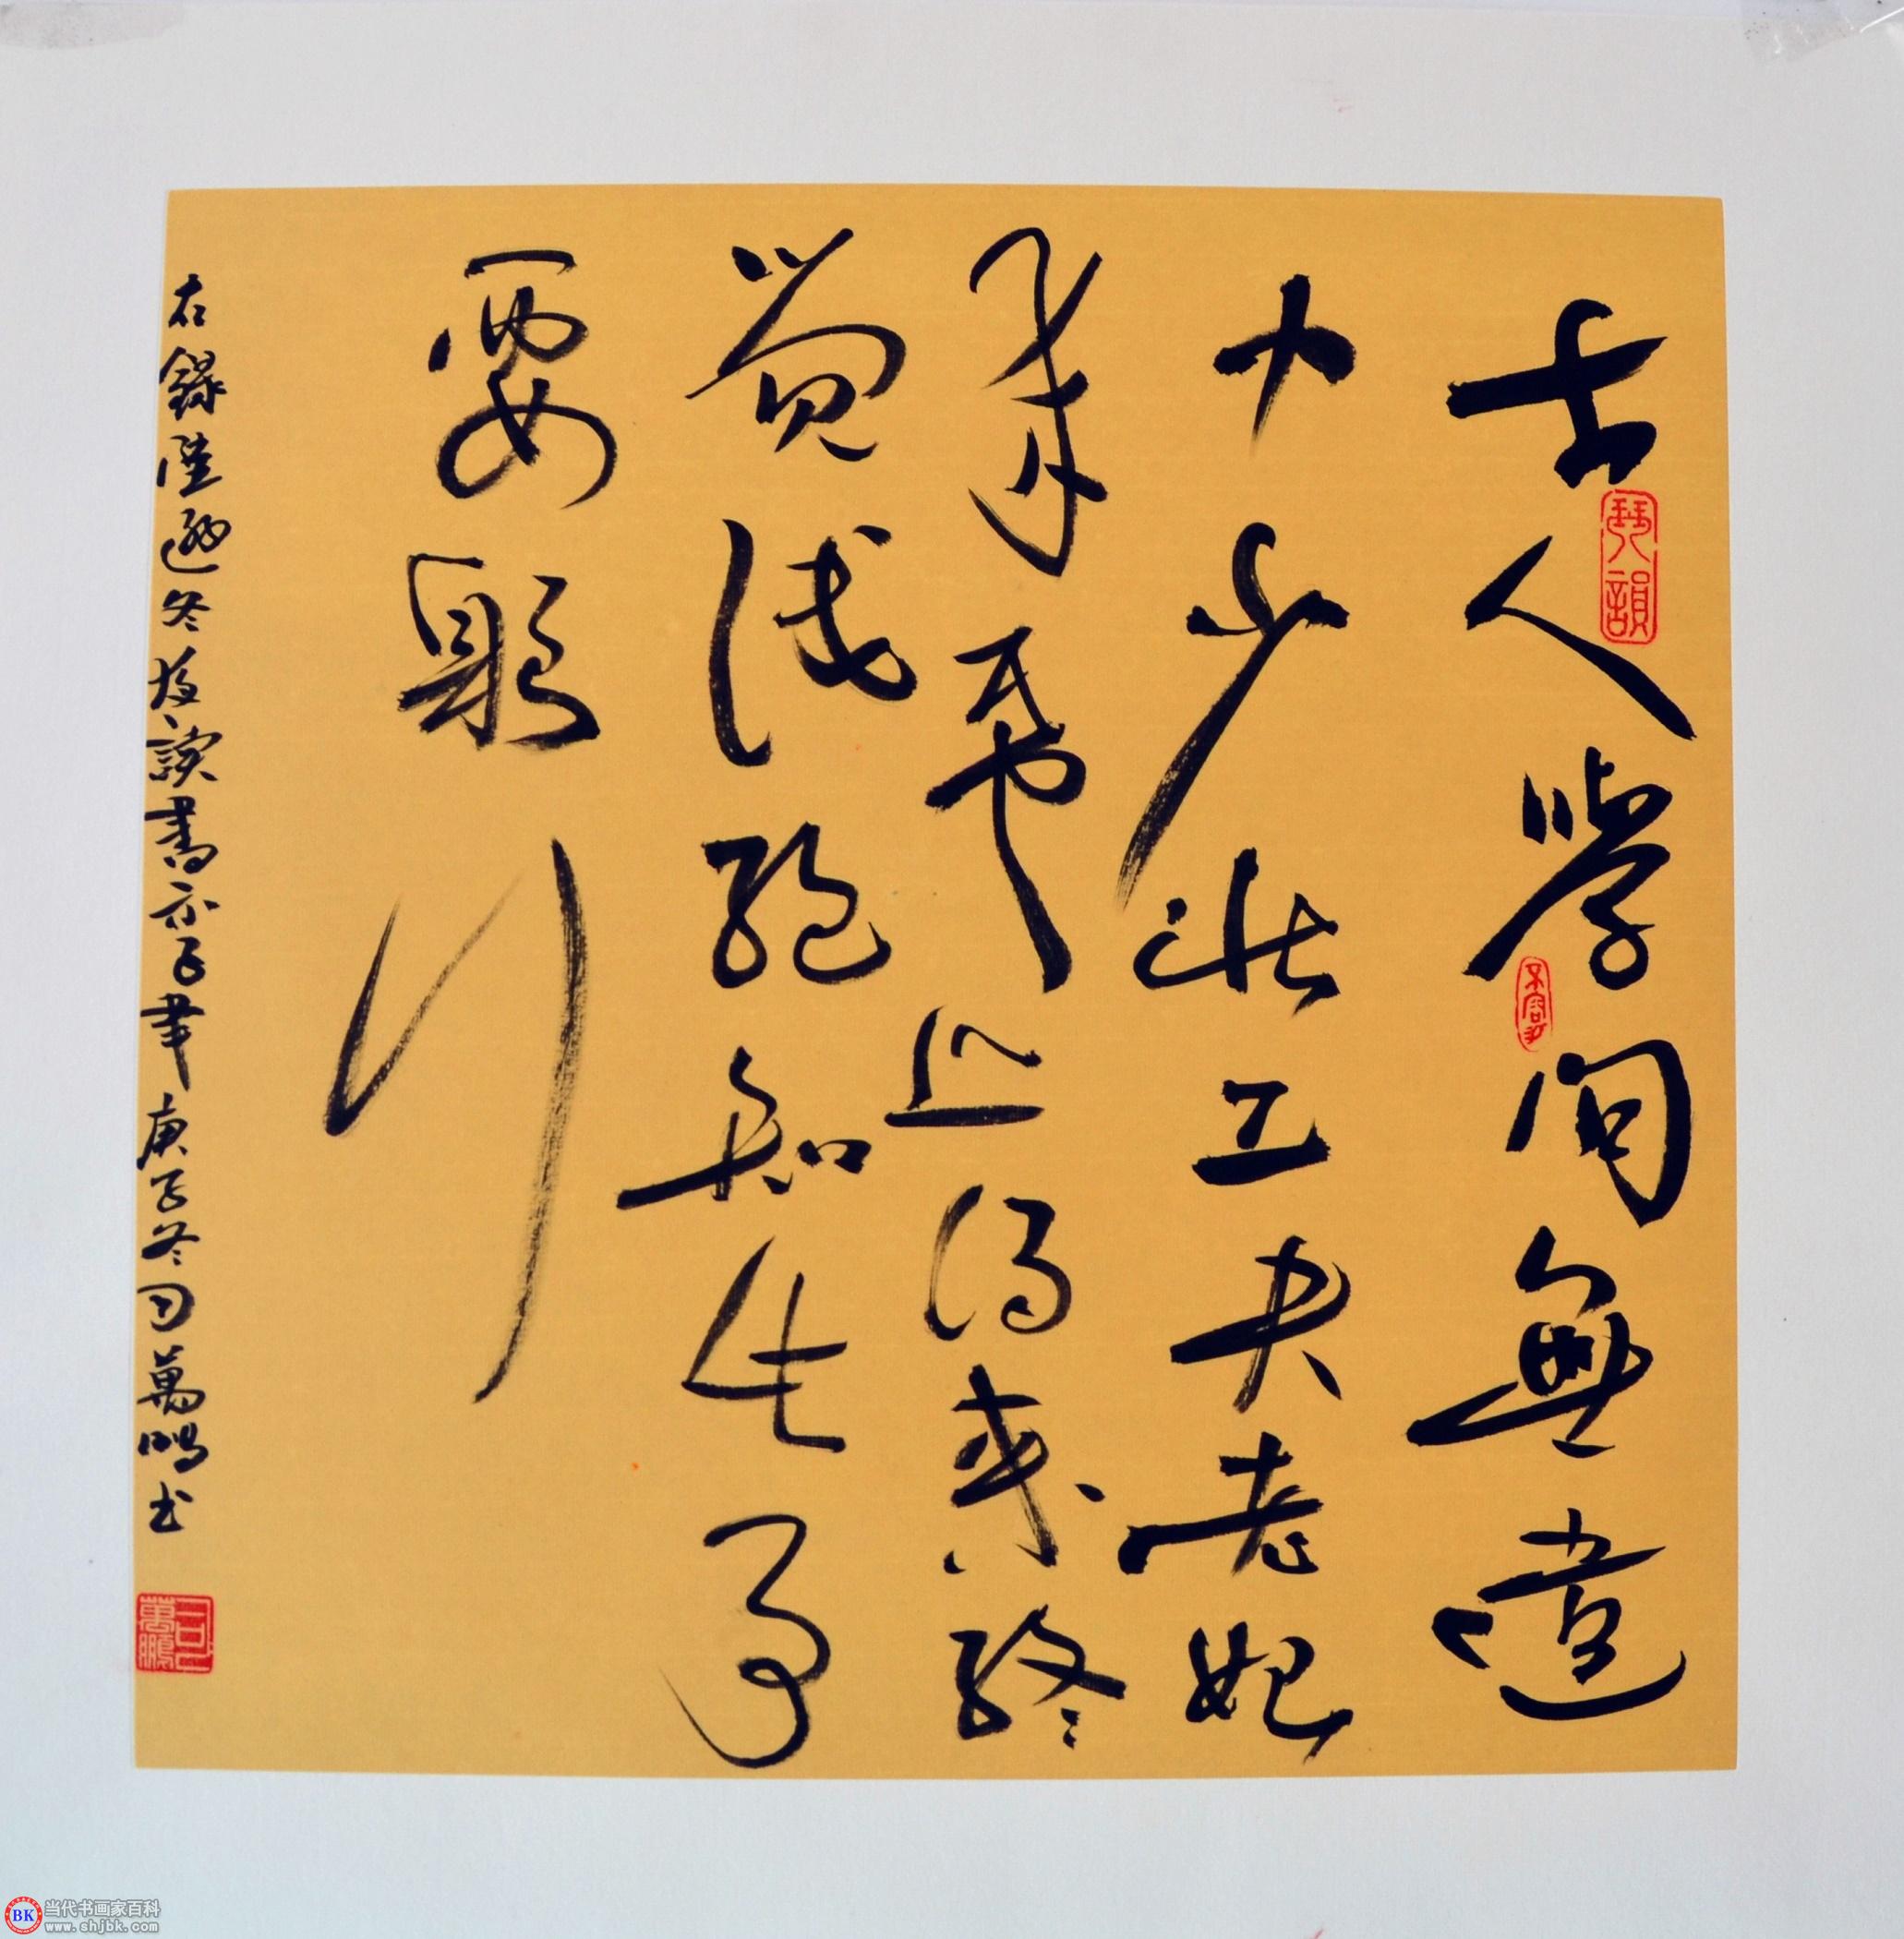 古人學問無遺
力少壯工夫老始
成紙上得來終
覺淺絕知此事
要躬行
右錄陸遊冬夜讀書示子聿庚子冬司萬鵬书
琴韻
司萬鵬
BK
当代书画家百科
www.shjbk.com